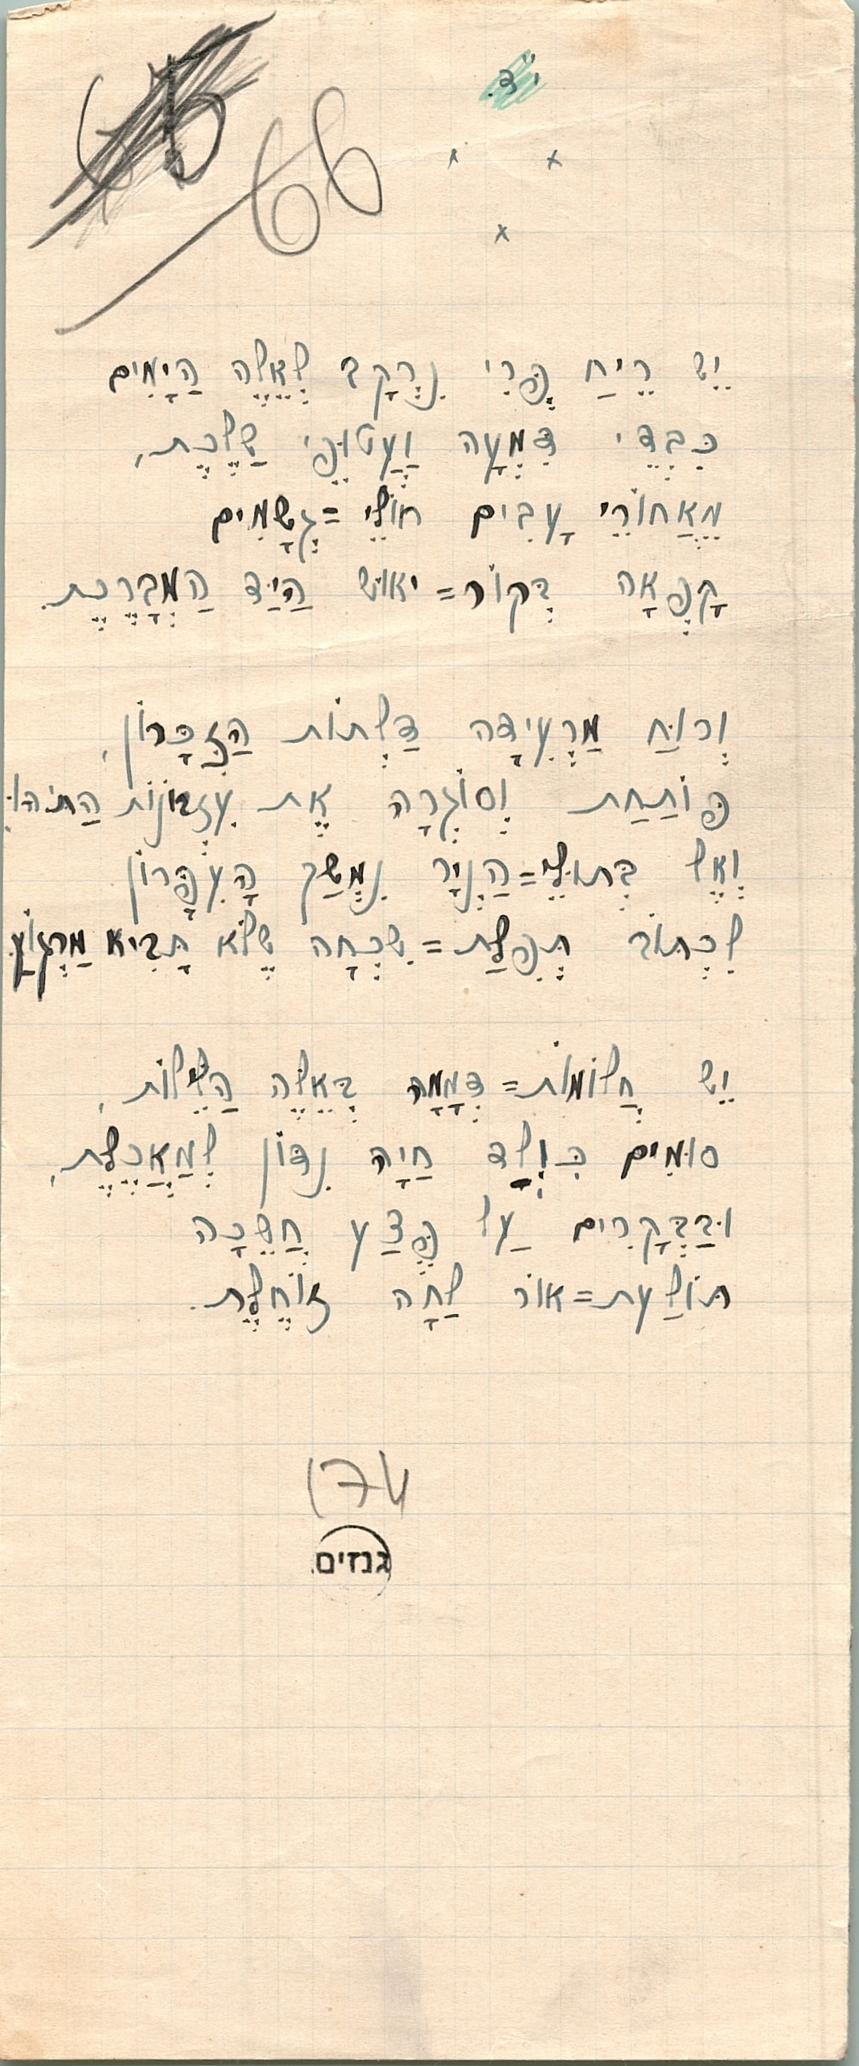 י"ד.
66
x x
x
יֵשׁ רֵיחַ פְּרִי נִרְקָב לְאֵלֶּה הַיָּמִים
כִּבְדֵי דִמְעָה וַעֲטוּפֵי שַׁלֶּכֶת,
מֵאֲחוֹרֵי עָבִים חוֹלֵי=גְשָׁמִים
קָפְאָה בְּקוֹר=יאוּשׁ הַיַּד הַמְבָרֶכֶת.
וְרוּחַ מַרְעִידָה דַּלְתוֹת הַזִּכָּרוֹן,
פּוֹתַחַת וְסוֹגְרָה אֶת עִזְבוֹנוֹת הַתֹּהוּ
וְאֶל בְּתוּלֵי=הַנְּיָר נִמְשַׁךְ הָעִפָּרוֹן
לִכְתּוֹב תְּפִלַּת=שִׁכְחָה שֶׁלֹּא תָּבִיא מַרְגּוֹעַ
יֵשׁ חֲלוֹמוֹת=דְּמָמָה בְּאֵלֶּה הַלֵּילוֹת,
סוּמִים כִּוְלַד חַיָּה נִדּוֹן לְמַאֲכֶלֶת,
וּבַבְּקָרִים עַל פֶּצַע חֲשֵׁכָה
תּוֹלַעַת=אוֹר לַחָה זוֹחֶלֶת.
174
גנזים